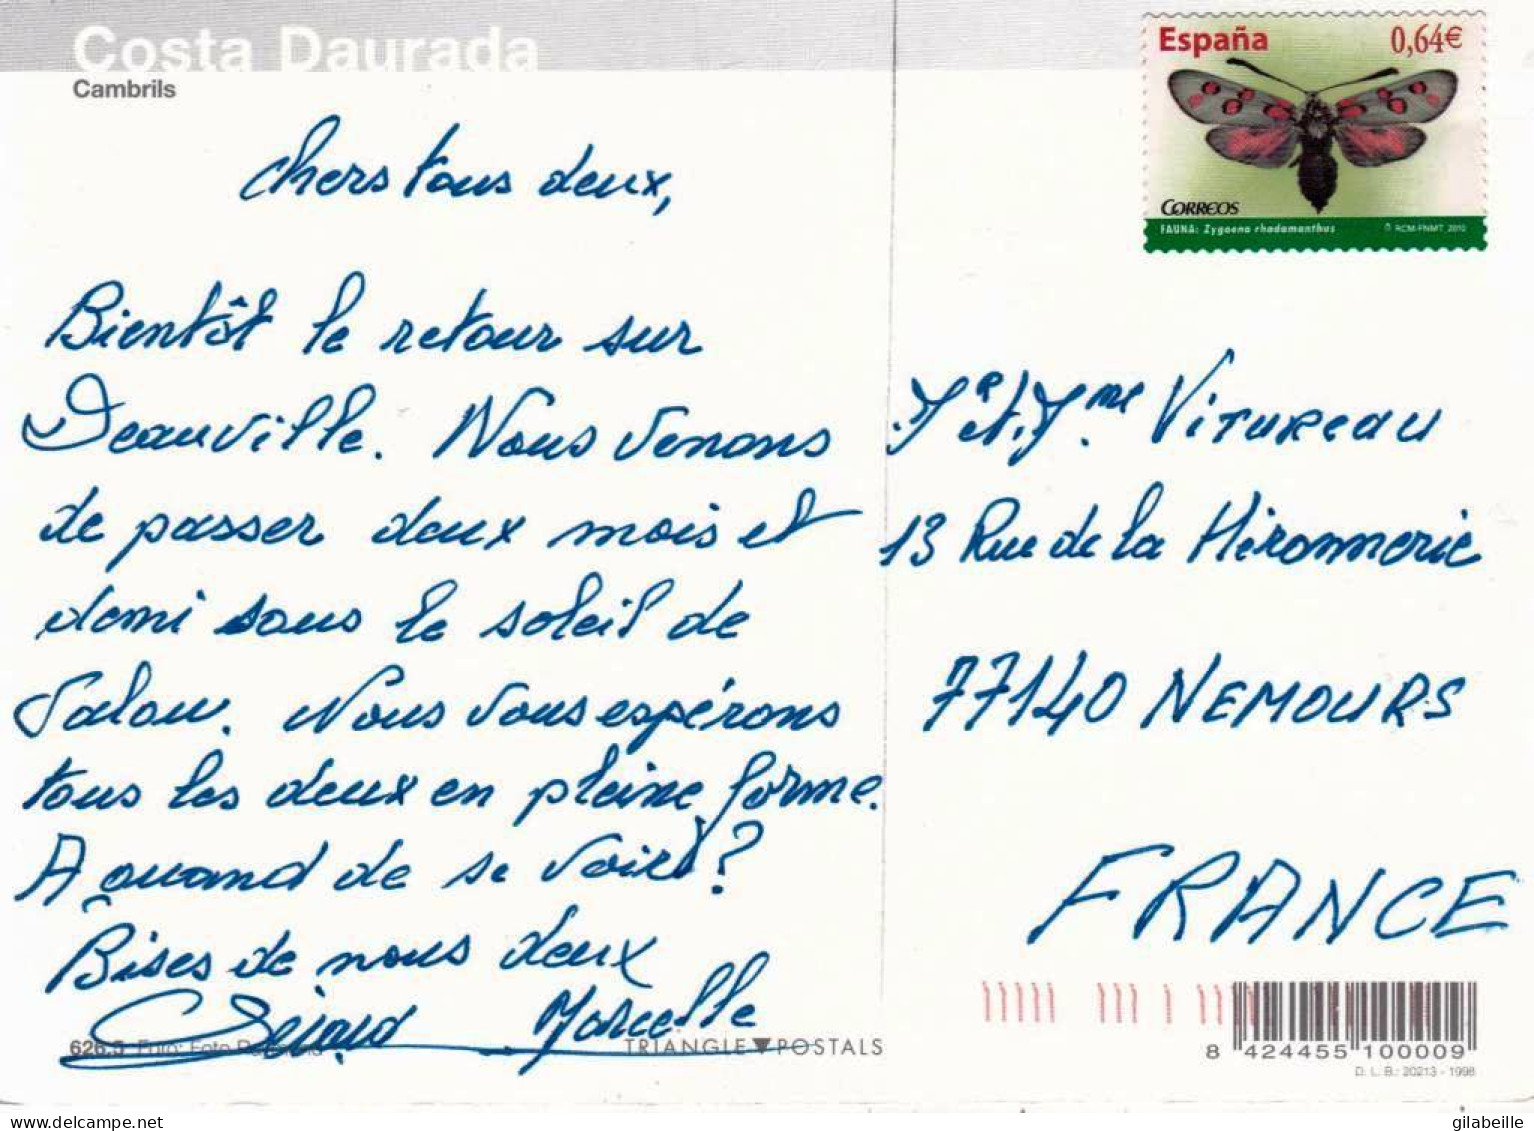 Costa Daurada
Cambrils
España 0,64€
CORREOS
FAUNA: Zygaena rhadamanthus © RCM-FNMT 2010
Chers tous deux,
Bientôt le retour sur
Deauville. Nous venons
de passer deux mois et
demi sous le soleil de
Salou. Nous vous espérons
tous les deux en pleine forme.
A quand de se voir ?
Bises de nous deux
Gérard Marcelle
Mr et Mme Vitureau
13 Rue de la
77140 NEMOURS
FRANCE
626.5 Foto: Foto
TRIANGLE POSTALS
8 424455 100009
D. L. B.: 20213 - 1998
gilabeille